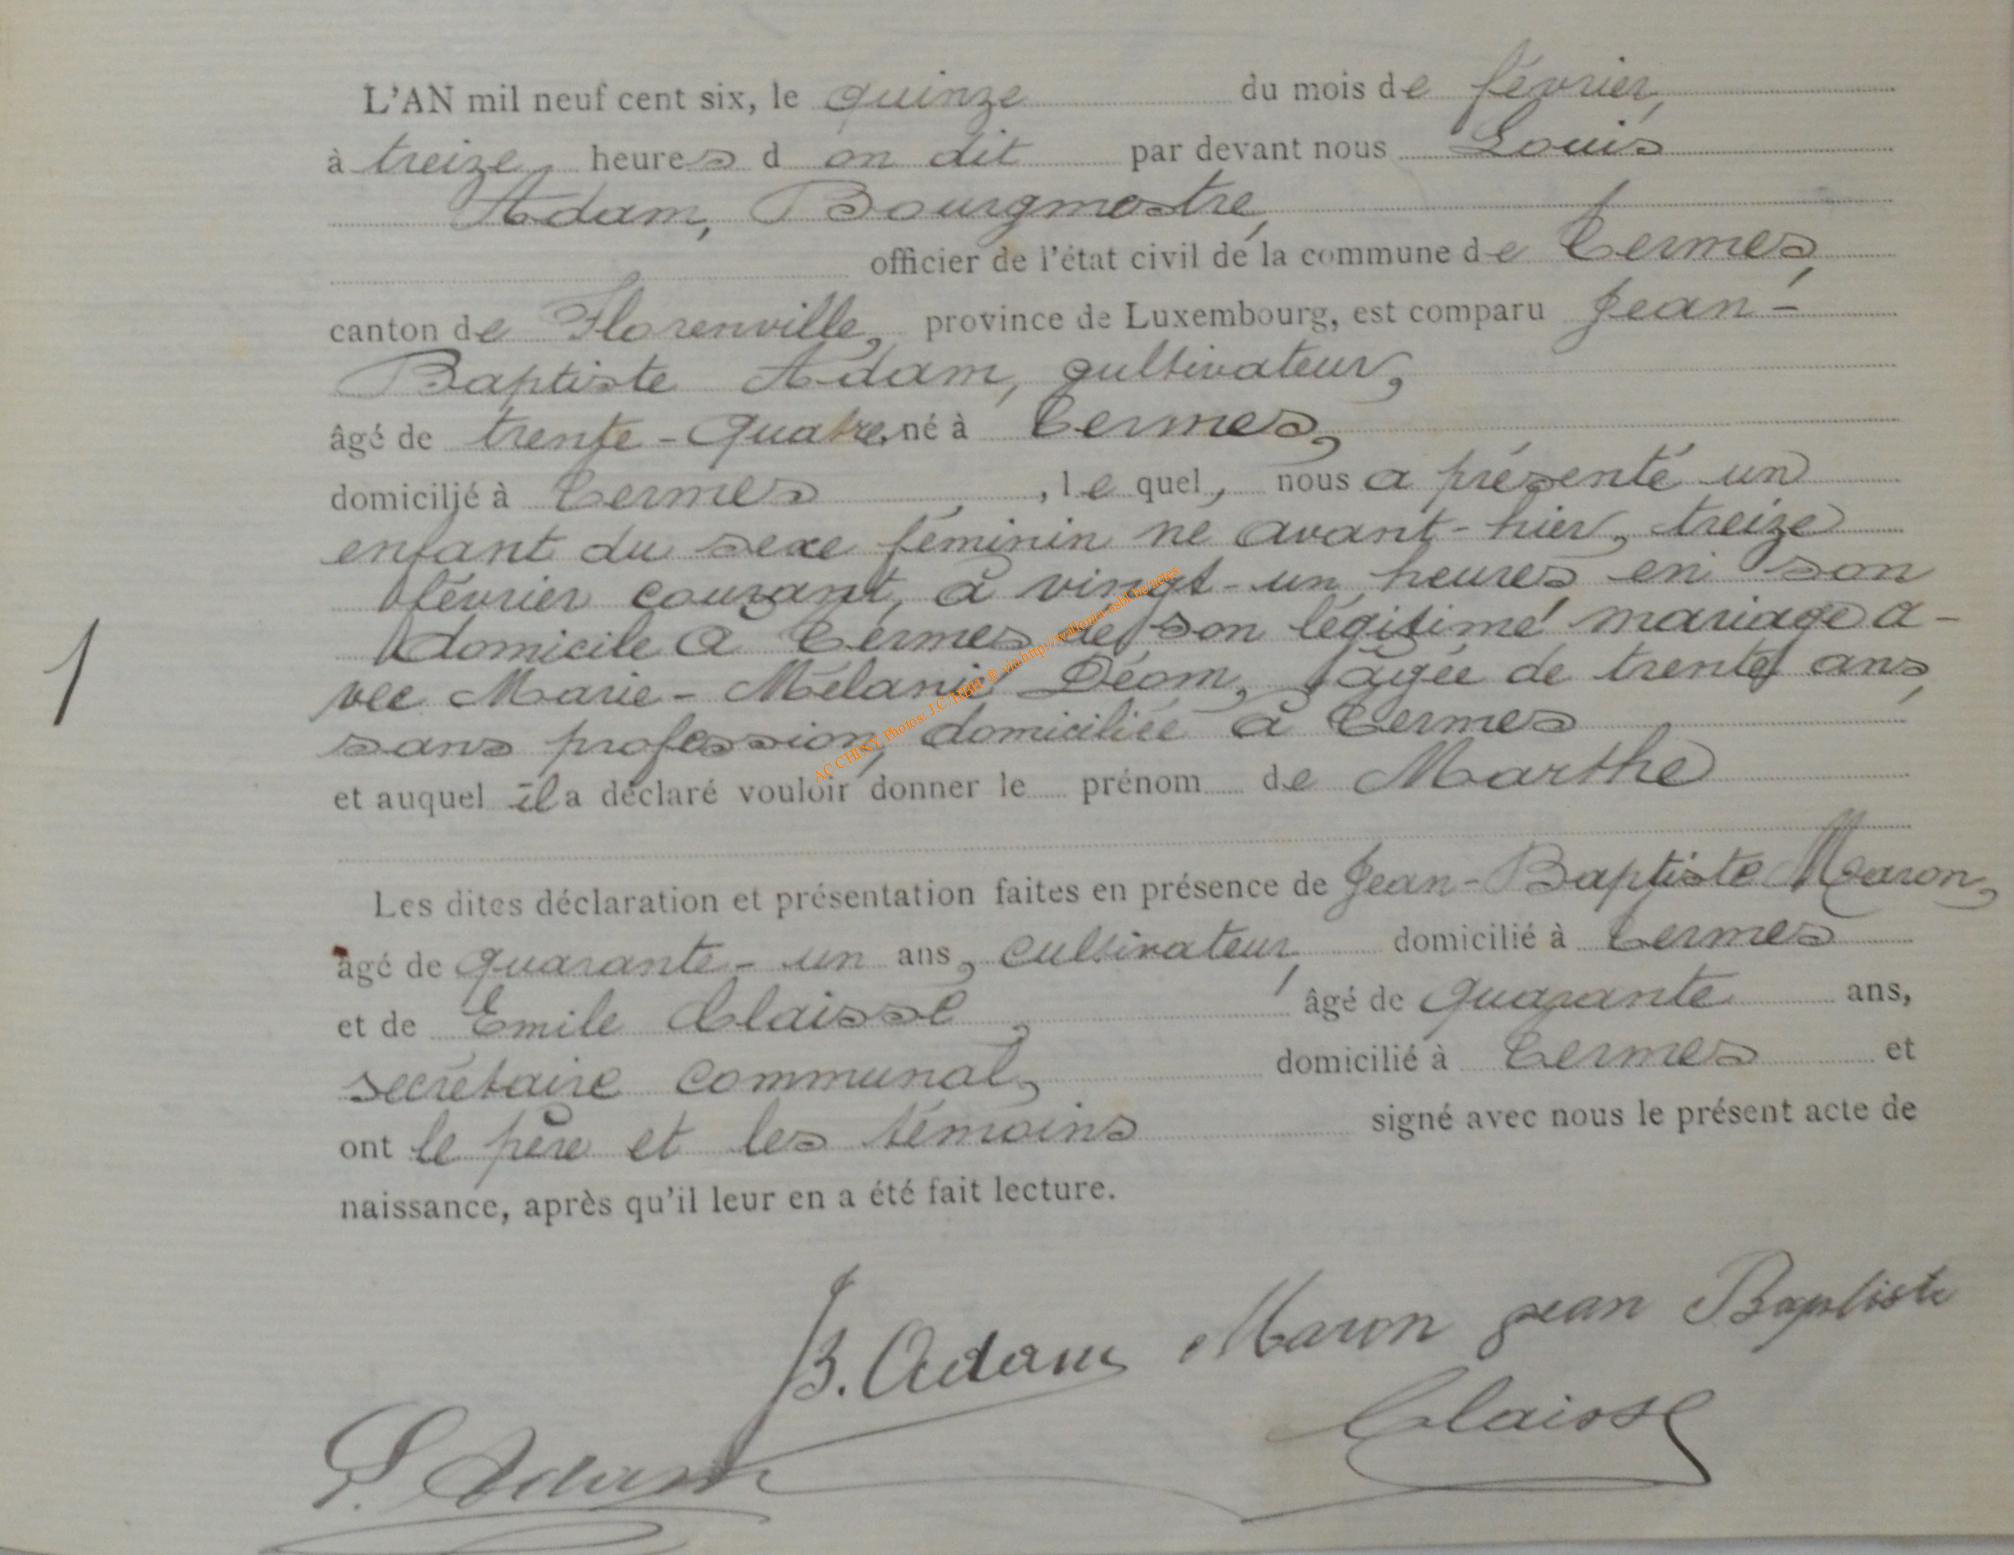 L'AN mil neuf cent six, le quinze du mois de février,
à treize heures d on dit par devant nous Louis
Adam, Bourgmestre,
officier de l'état civil de la commune de Termes,
canton de Florenville, province de Luxembourg, est comparu Jean-
Baptiste Adam, cultivateur,
âgé de trente-quatre, né à Termes,
domicilié à Termes, lequel, nous a présenté un
enfant du sexe féminin né avant-hier, treize
février courant, à vingt-un heures en son
domicile à Termes de son légitime mariage a-
vec Marie-Mélanie Déom, âgée de trente ans,
sans profession, domiciliée à Termes
et auquel il a déclaré vouloir donner le prénom de Marthe
Les dites déclaration et présentation faites en présence de Jean-Baptiste Maron,
âgé de quarante-un ans, cultivateur, domicilié à Termes
et de Emile Claisse, âgé de quarante ans,
secrétaire communal, domicilié à Termes et
ont le père et les témoins signé avec nous le présent acte de
naissance, après qu'il leur en a été fait lecture.
1
JB. Adam Maron jean Baptiste
L. Adam Claisse
AC CHINY Photos: J.C. via http://